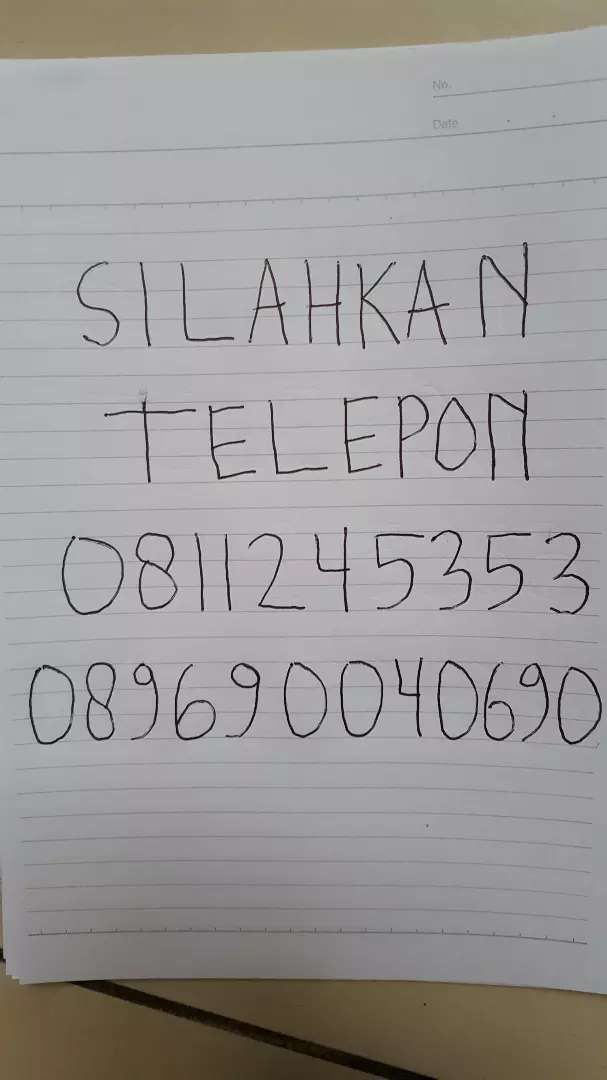 No.
Date
SILAHKAN
TELEPON
0811245353
089690040690